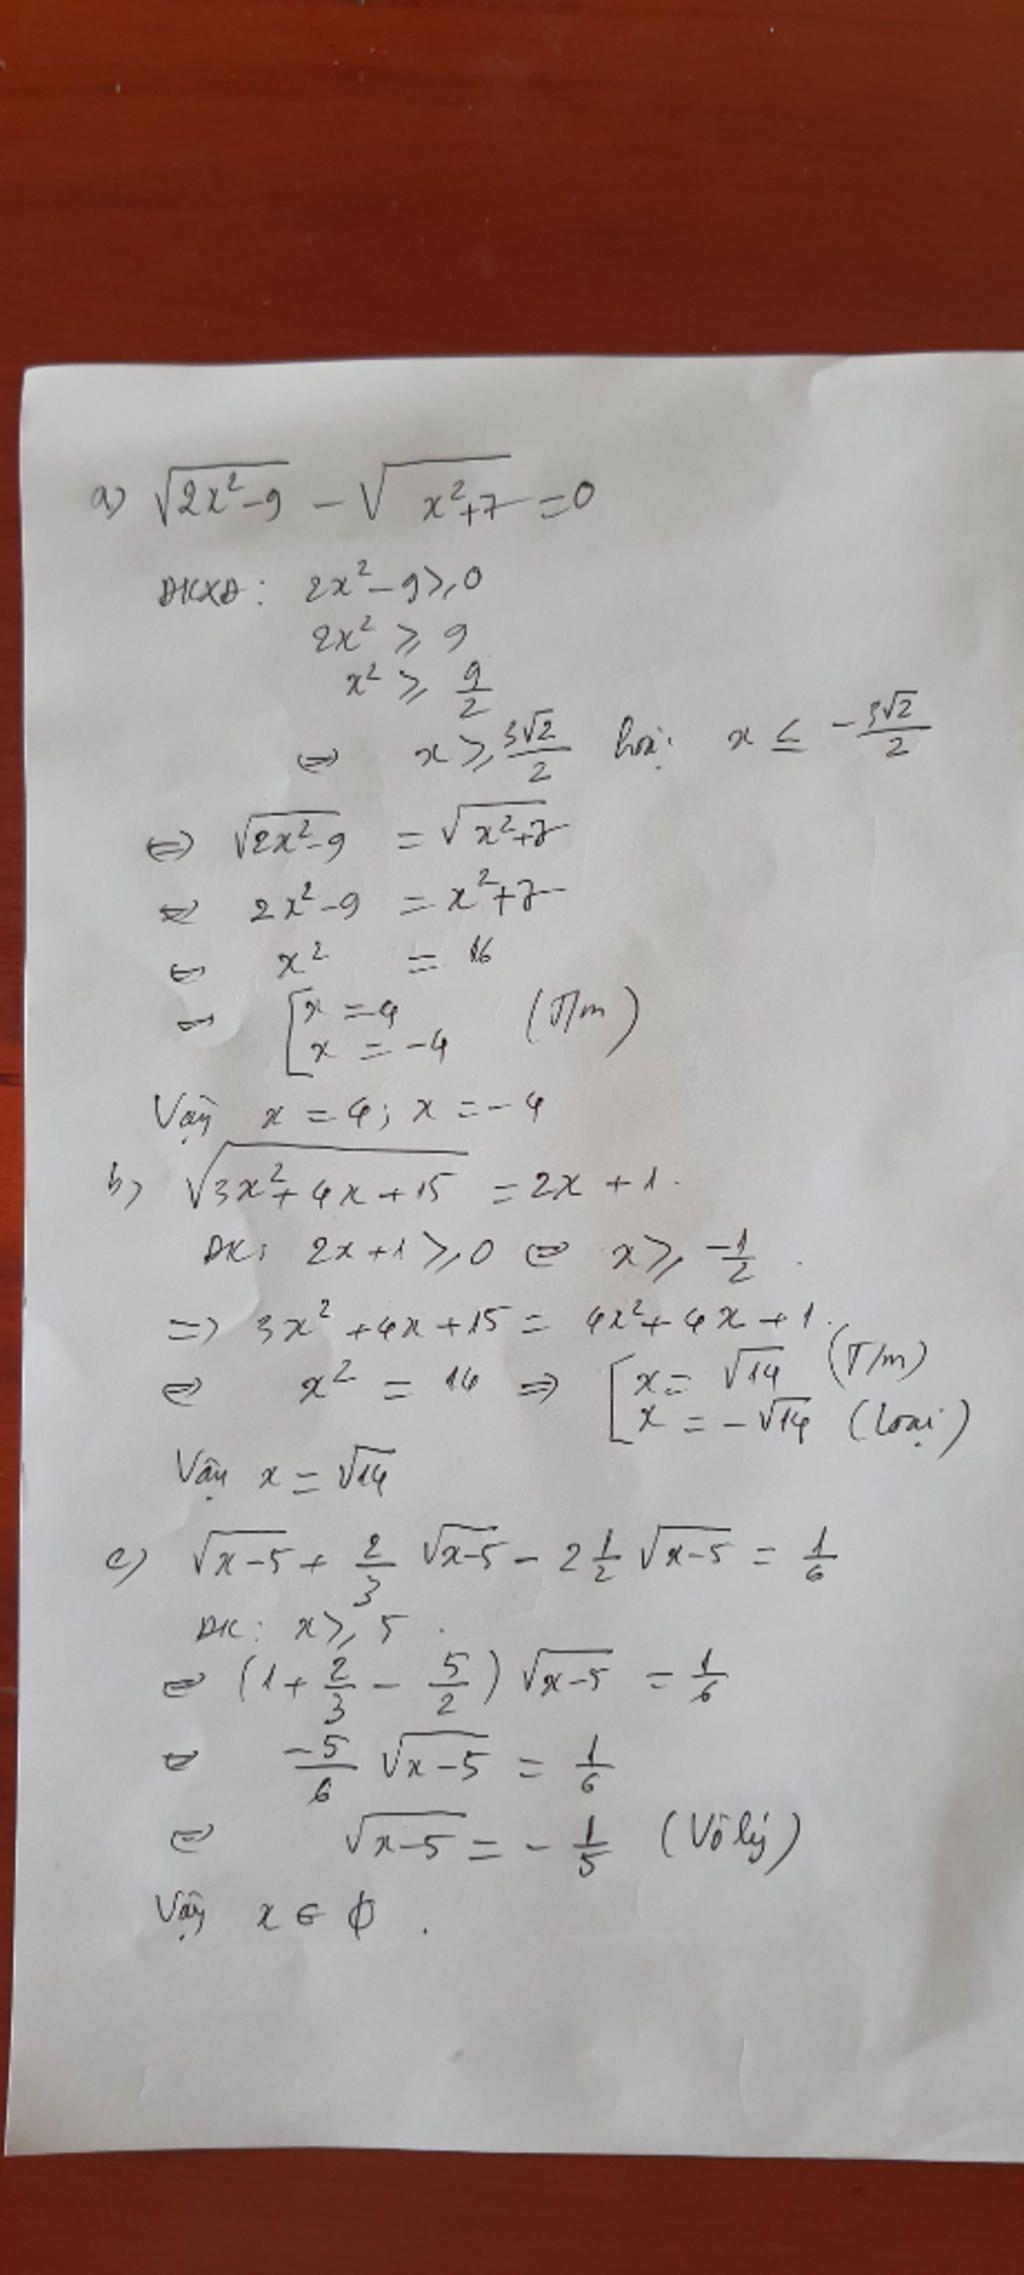 a) √(2x²-9) - √(x²+7) = 0
ĐKXĐ: 2x² - 9 ≥ 0
2x² ≥ 9
x² ≥ 9/2
⇔ x ≥ 3√2/2 hoặc x ≤ -3√2/2
⇔ √(2x²-9) = √(x²+7)
⇔ 2x²-9 = x²+7
⇔ x² = 16
⇔ [x = 4
x = -4 (T/m)
Vậy x = 4; x = -4
b) √(3x²+4x+15) = 2x + 1.
ĐK: 2x+1 ≥ 0 ⇔ x ≥ -1/2.
=> 3x² + 4x + 15 = 4x² + 4x + 1.
⇔ x² = 14 => [x = √14 (T/m)
x = -√14 (loại)
Vậy x = √14
c) √(x-5) + 2/3 √(x-5) - 2 1/2 √(x-5) = 1/6
ĐK: x ≥ 5.
⇔ (1 + 2/3 - 5/2) √(x-5) = 1/6
⇔ -5/6 √(x-5) = 1/6
⇔ √(x-5) = - 1/5 (Vô lý)
Vậy x ∈ ϕ.